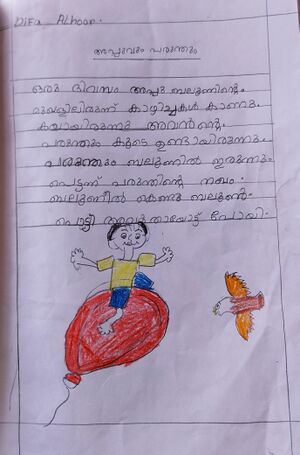 Difa Alhoor.
അപ്പുവും പരുന്തും
ഒരു ദിവസം അപ്പു ബലൂണിന്റെ
മുകളിലിരുന്ന് കാഴ്ച്ചകൾ കാണുക
കയായിരുന്നു അവൻ്റെ
പരുന്തും കൂടെ ഉണ്ടായിരുന്നു.
പരുന്തും ബലൂണിൽ ഇരുന്നു.
പെട്ടന്ന് പരുന്തിൻ്റെ നഖം
ബലൂണിൽ കൊണ്ടു ബലൂൺ
പൊട്ടി പോയി.